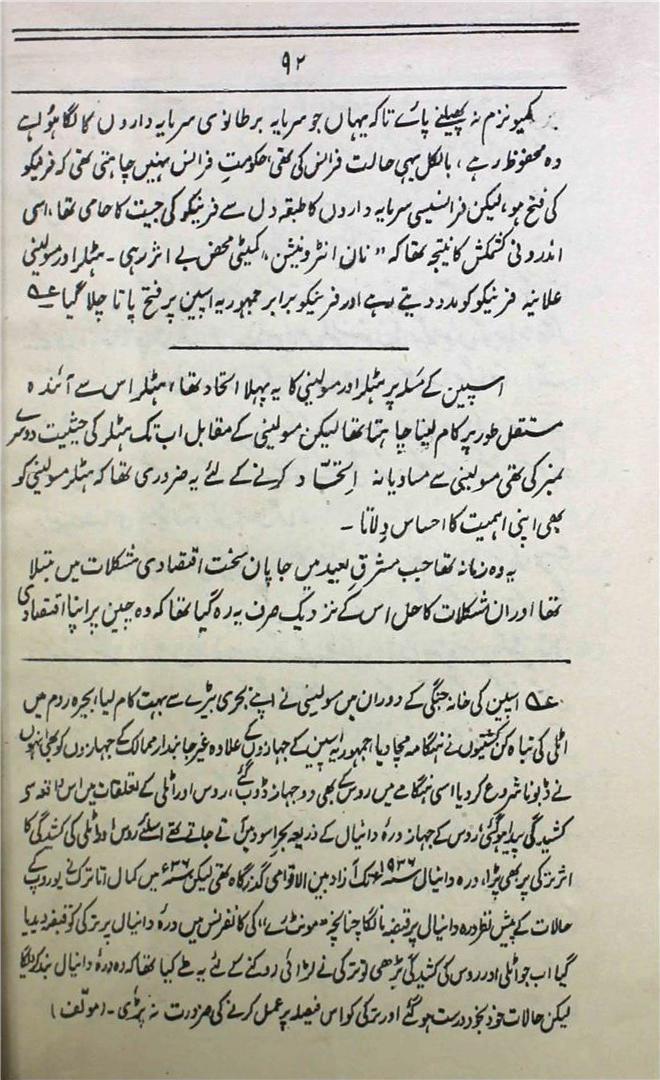 ۹۲
کمیونزم نہ پھیلنے پائے تاکہ یہاں جو سرمایہ برطانوی سرمایہ داروں کا لگا ہوا ہے
وہ محفوظ رہے، بالکل یہی حالت فرانس کی تھی، حکومتِ فرانس نہیں چاہتی تھی کہ فرنیکو
کی فتح ہو، لیکن فرانسیسی سرمایہ داروں کا طبقہ دل سے فرنیکو کی جیت کا حامی تھا، اسی
اندرونی کشمکش کا نتیجہ تھا کہ "نان انٹرونیشن" کمیٹی محض بے اثر رہی۔ ہٹلر اور مسولینی
علانیہ فرنیکو کو مدد دیتے رہے اور فرنیکو برابر جمہوریہ اسپین پر فتح پاتا چلا گیا ؎۵
اسپین کے مسئلہ پر ہٹلر اور مسولینی کا یہ پہلا اتحاد تھا، ہٹلر اس سے آئندہ
مستقل طور پر کام لینا چاہتا تھا لیکن مسولینی کے مقابل اب تک ہٹلر کی حیثیت دوسرے
نمبر کی تھی مسولینی سے مساویانہ اتحاد کرنے کے لئے یہ ضروری تھا کہ ہٹلر مسولینی کو
بھی اپنی اہمیت کا احساس دلاتا۔
یہ وہ زمانہ تھا جب مشرقِ بعید میں جاپان سخت اقتصادی مشکلات میں مبتلا
تھا اور ان مشکلات کا حل اس کے نزدیک صرف یہ رہ گیا تھا کہ وہ چین پر اپنا اقتصادی
؎۵ اسپین کی خانہ جنگی کے دوران میں مسولینی نے اپنے بحری بیڑے سے بہت کام لیا، بحیرہ روم میں
اٹلی کی تباہ کن کشتیوں نے ہنگامہ مچا دیا، جمہوریہ اسپین کے جہازوں کے علاوہ غیر جانبدار ممالک کے جہازوں کو بھی انہوں
نے ڈبونا شروع کر دیا اسی ہنگامے میں روس کے بھی دو جہاز ڈوب گئے، روس اور اٹلی کے تعلقات میں اس واقعہ سے
کشیدگی پیدا ہو گئی، روس کے جہاز درہ دانیال کے ذریعہ بحرِ اسود میں آتے جاتے تھے اسلئے روس اور اٹلی کی کشیدگی کا
اثر ترکی پر بھی پڑا، درہ دانیال ۱۹۳۶ء تک آزاد بین الاقوامی گذرگاہ تھی لیکن ۳۶ء میں کمال اتاترک نے یوروپ کے
حالات کے پیش نظر درہ دانیال پر قبضہ مانگا چنانچہ "مونٹرے" کی کانفرنس میں درہ دانیال پر ترکی کو قبضہ دیدیا
گیا اب جو اٹلی اور روس کی کشیدگی بڑھی تو ترکی نے لڑائی روکنے کے لئے یہ طے کیا تھا کہ وہ درہ دانیال بند کر دیگا
لیکن حالات خود بخود درست ہو گئے اور ترکی کو اس فیصلہ پر عمل کرنے کی ضرورت نہ پڑی۔ (مولف)